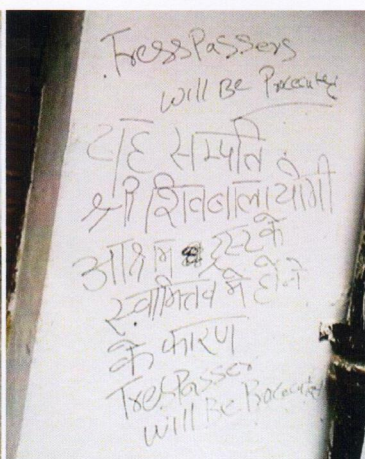 TressPassers
will Be Prosecuted
यह सम्पति
श्री शिवबालायोगी
आश्रम ट्रस्ट के
स्वामित्व मे होने
के कारण
TresPasser
will Be Procecuted